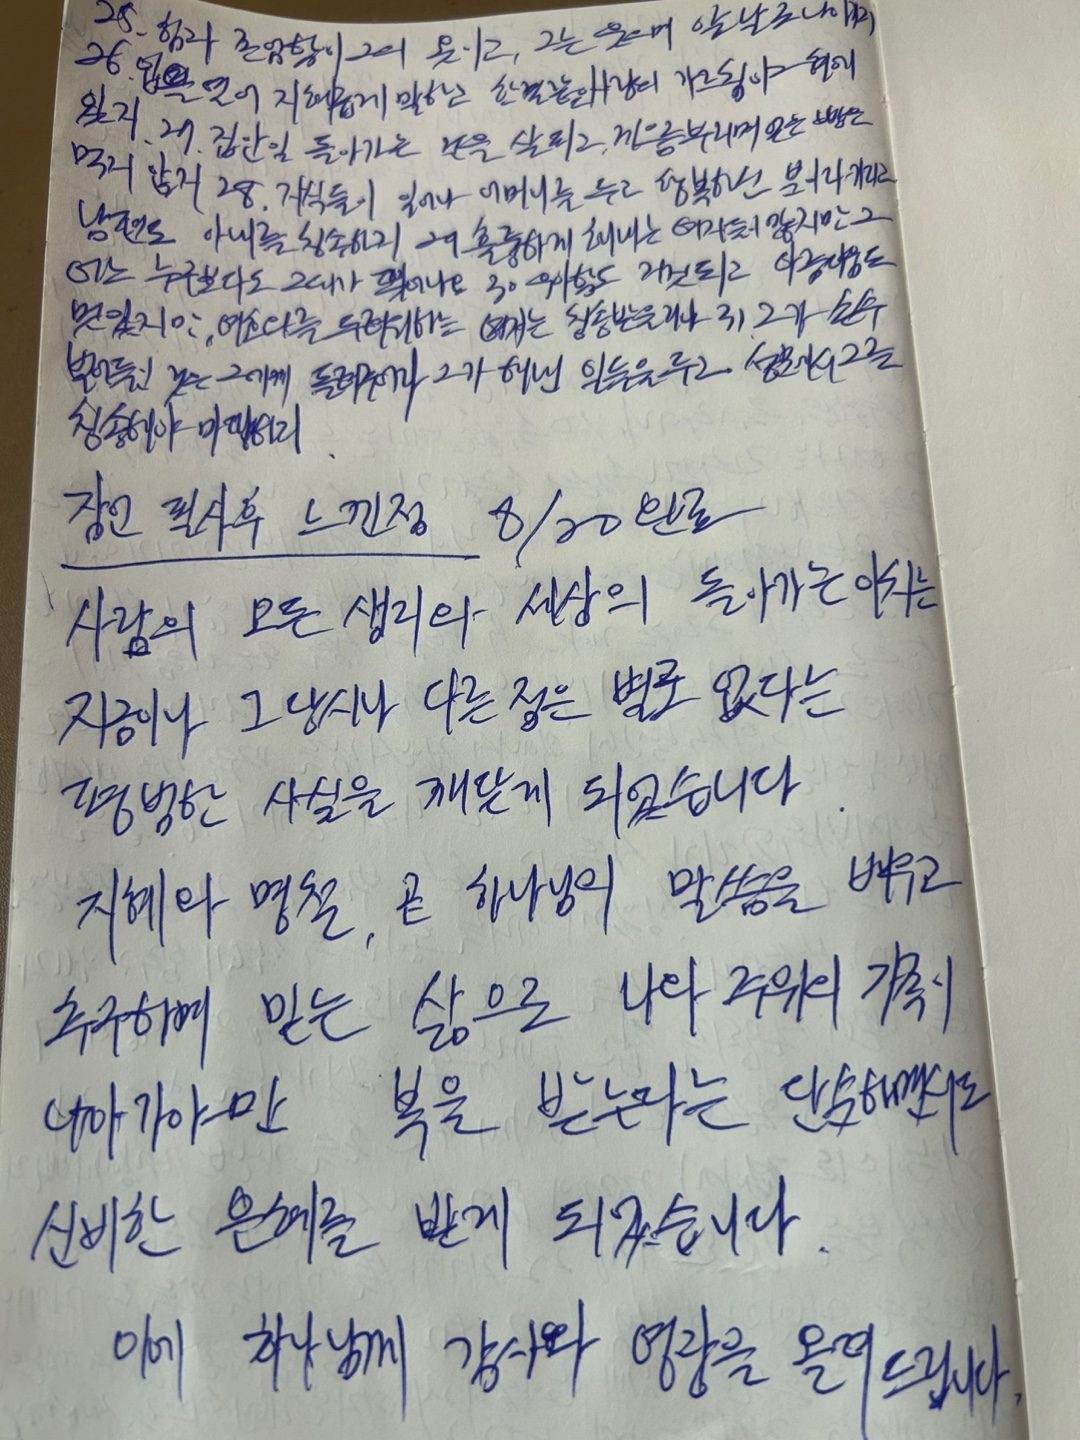 25. 힘과 존엄함이 그의 옷이고, 그는 웃으며 앞날로 나아가지
26. 입을 열어 지혜롭게 말하고 한결같은 사랑의 가르침이 혀에
있지. 27. 집안일 돌아가는 것을 살피고, 게으름부리며 얻는 빵은
먹지 않지 28. 자식들이 일어나 어머니를 두고 행복하신 분이라 기리고
남편도 아내를 칭송하지 29 훌륭하게 해내는 여자들이 많지만 그
어느 누구보다도 그대가 뛰어나요 30 우아함도 거짓되고 아름다움도
헛일지만, 여호와를 두려워하는 여자는 칭송받을지니 31 그가 손수
벌어들인 것은 그에게 돌려주어라 그가 해낸 일들을 두고 성문에서 그를
칭송해야 마땅하리
잠언 필사후 느낀점 8/20 완료
사람의 모든 생리와 세상의 돌아가는 이치는
지금이나 그 당시나 다른 점은 별로 없다는
평범한 사실을 깨닫게 되었습니다.
지혜와 명철, 곧 하나님의 말씀을 배우고
추구하며 믿는 삶으로 나와 주위의 가족이
나아가야만 복을 받는다는 단순하면서도
신비한 은혜를 받게 되었습니다.
이에 하나님께 감사와 영광을 올려드립니다.